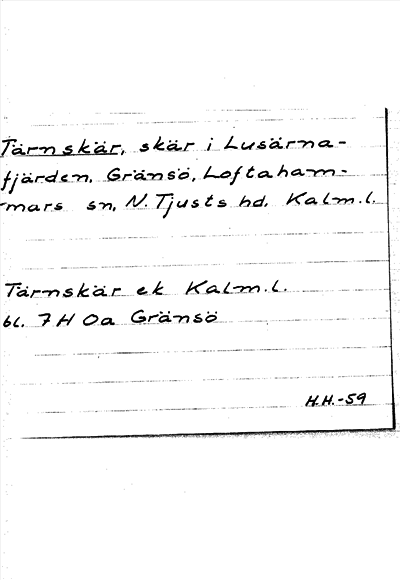 Tärnskär, skär i Lusärna-
fjärden, Gränsö, Loftaham-
mars sn, N. Tjusts hd, Kalm.l.
Tärnskär ek Kalm.l.
bl. 7 H 0a Gränsö
H.H.-59